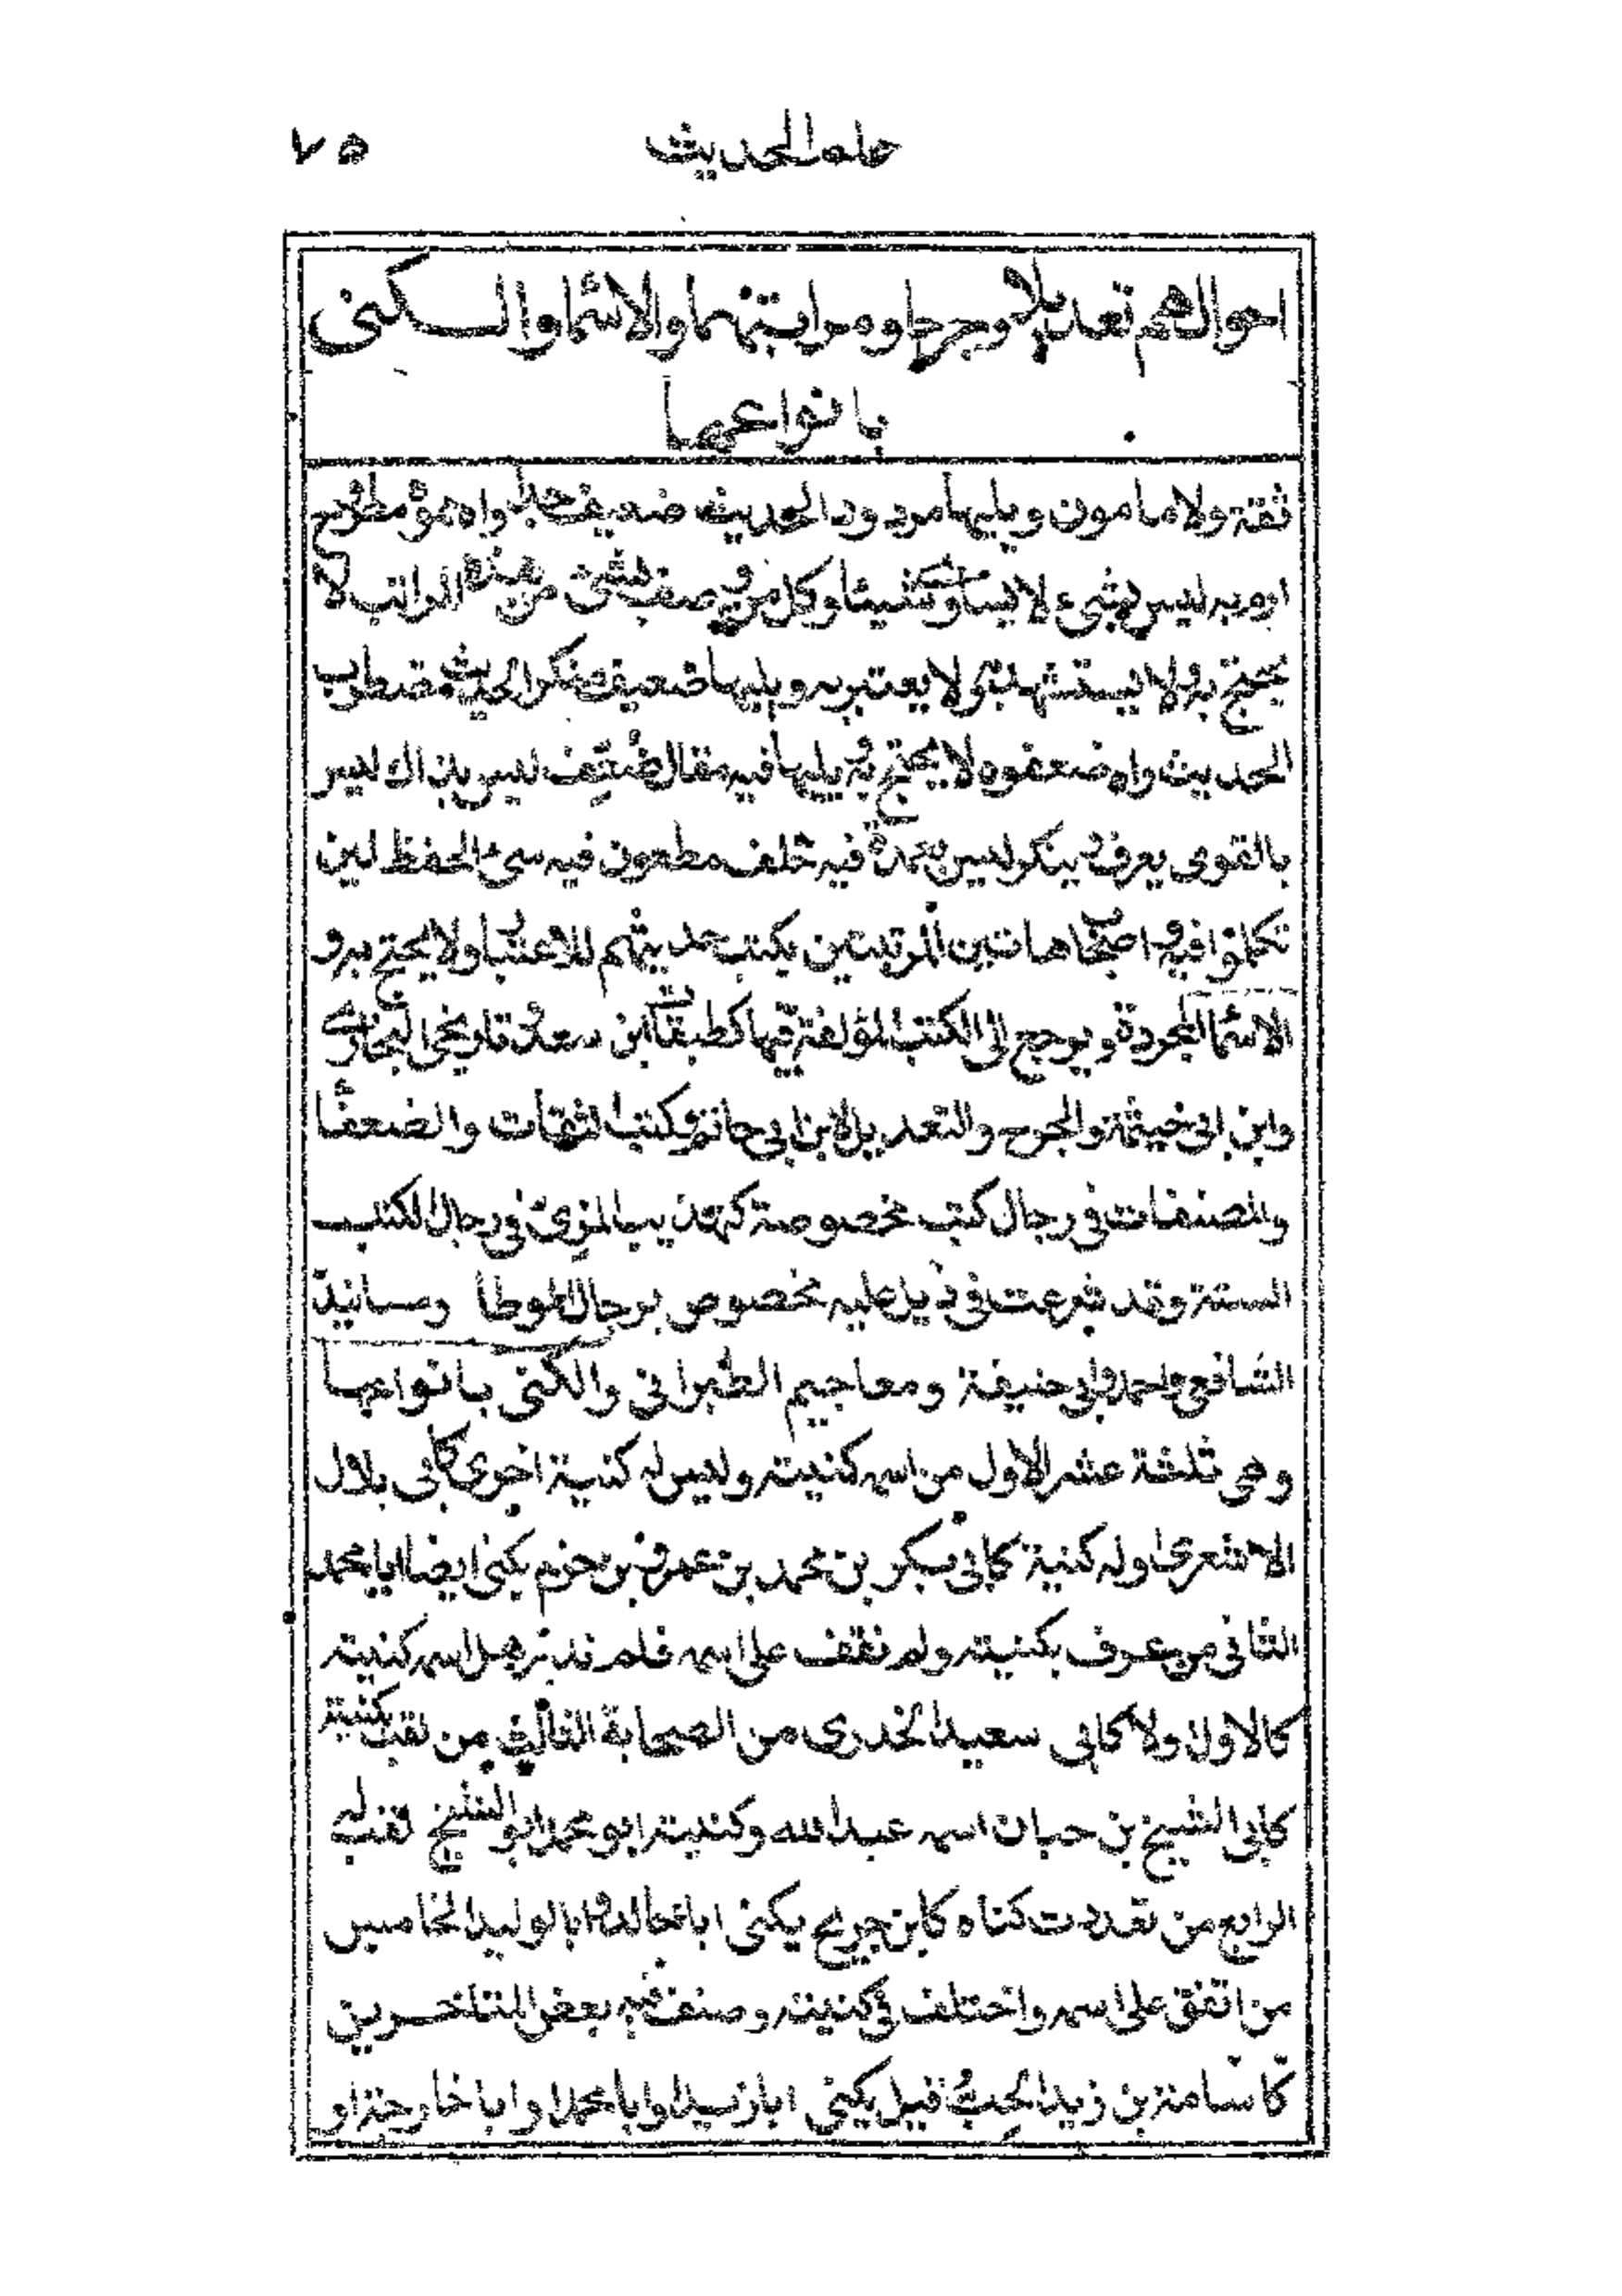 علم الحديث ٧٥
احوالهم تعديلا وجرحا ومراتبهما والاسماء والكنى
بانواعها
ثقة ولا مامون ويليها مردود الحديث ضعيف جدا واه بمرة مطروح
ارم به ليس بشيء لا يساوي شيئا وكل من وصف بشئ من هذه المراتب لا
يحتج به ولا يستشهد به ولا يعتبر به ويليها ضعيف منكر الحديث مضطرب
الحديث واه ضعفوه لا يحتج به ويليها فيه مقال ضُعِّف ليس بذاك ليس
بالقوى يعرف وينكر ليس بعمدة فيه خلف مطعون فيه سئ الحفظ لين
تكلموا فيه واصحاب هاتين المرتبتين يكتب حديثهم للاعتبار ولا يحتج به و
الاسماء المجردة ويرجع الى الكتب المؤلفة فيها كطبقات ابن سعد وتاريخى البخارى
وابن ابى خيثمة والجرح والتعديل لابن ابي حاتم وكتب الثقات والضعفا
والمصنفات فى رجال كتب مخصوصة كتهذيب المزى فى رجال الكتب
الستة وقد شرعت فى ذيل عليه مخصوص برجال الموطا ومسانيد
الشافعى واحمد وابى حنيفة ومعاجيم الطبرانى والكنى بانواعها
وهى ثلثة عشر الاول من اسمه كنيته وليس له كنية اخرى كابى بلال
الاشعرى اوله كنية كابى بكر بن محمد بن عمرو بن حزم يكنى ايضا ابا محمد
الثانى من عرف بكنيته ولم نقف على اسمه فلم ندر هل اسمه كنيته
كالاول او لا كابى سعيد الخدرى من الصحابة الثالث من لقب بكنيته
كابى الشيخ بن حبان اسمه عبد الله وكنيته ابو محمد وابو الشيخ لقب له
الرابع من تعددت كناه كابن جريج يكنى ابا خالد وابا الوليد الخامس
من اتفق على اسمه واختلف فى كنيته وصنف فيه بعض المتاخرين
كاسامة بن زيد الحب قيل يكنى ابا زيد او ابا محمد او ابا خارجة او